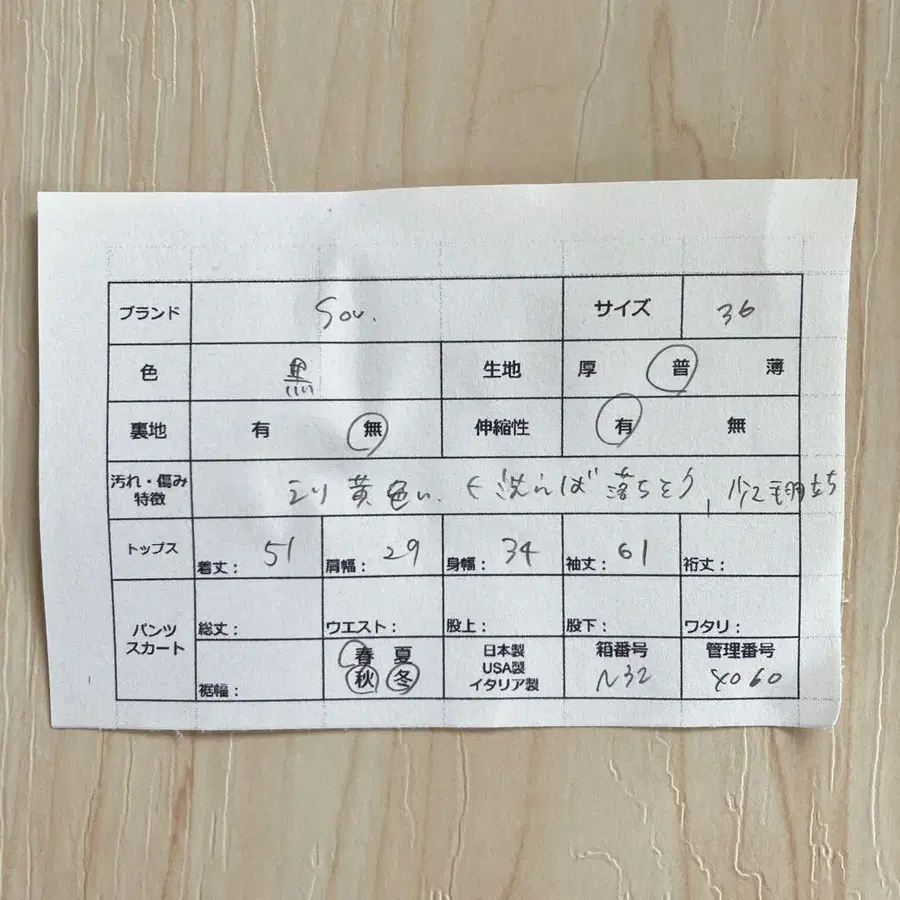 ブランド Sov. サイズ 36
色 黒 生地 厚 普 薄
裏地 有 無 伸縮性 有 無
汚れ・傷み
特徴
エリ黄色い、く洗えば落ちそう、少し毛羽立ち
トップス 着丈： 51 肩幅： 29 身幅： 34 袖丈： 61 裄丈：
パンツ
スカート
総丈： ウエスト： 股上： 股下： ワタリ：
裾幅：
春 夏
秋 冬
日本製
USA製
イタリア製
箱番号
N32
管理番号
4060